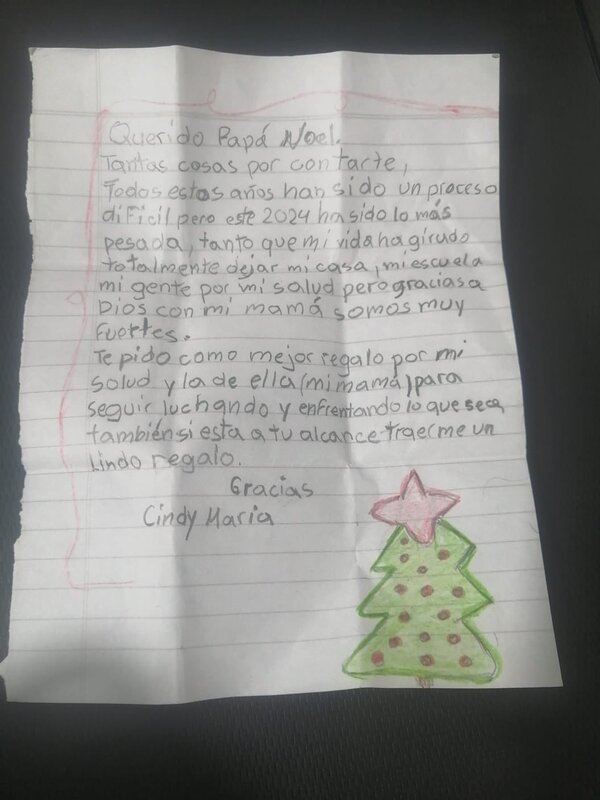 Querido Papá Noel.
Tantas cosas por contarte,
Todos estos años han sido un proceso
difícil pero este 2024 ha sido lo más
pesada, tanto que mi vida ha girudo
totalmente dejar mi casa, mi escuela
mi gente por mi salud pero gracias a
Dios con mi mamá somos muy
fuertes.
Te pido como mejor regalo por mi
salud y la de ella (mi mamá) para
seguir luchando y enfrentando lo que sea,
también si esta a tu alcance traerme un
Lindo regalo.
Gracias
Cindy Maria